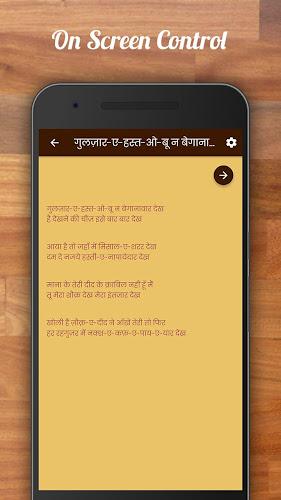 On Screen Control
गुलज़ार-ए-हस्त-ओ-बू न बेगाना...
गुलज़ार-ए-हस्त-ओ-बू न बेगानावार देख
है देखने की चीज़ इसे बार बार देख
आया है तो जहाँ में मिसाल-ए-शरर देख
दम दे नजये हस्ती-ए-नापायेदार देख
माना के तेरी दीद के क़ाबिल नहीं हूँ मैं
तू मेरा शौक़ देख मेरा इंतजार देख
खोली हैं ज़ौक़-ए-दीद ने आँखें तेरी तो फिर
हर रहगुज़र में नक्श-ए-कफ़-ए-पाय-ए-यार देख